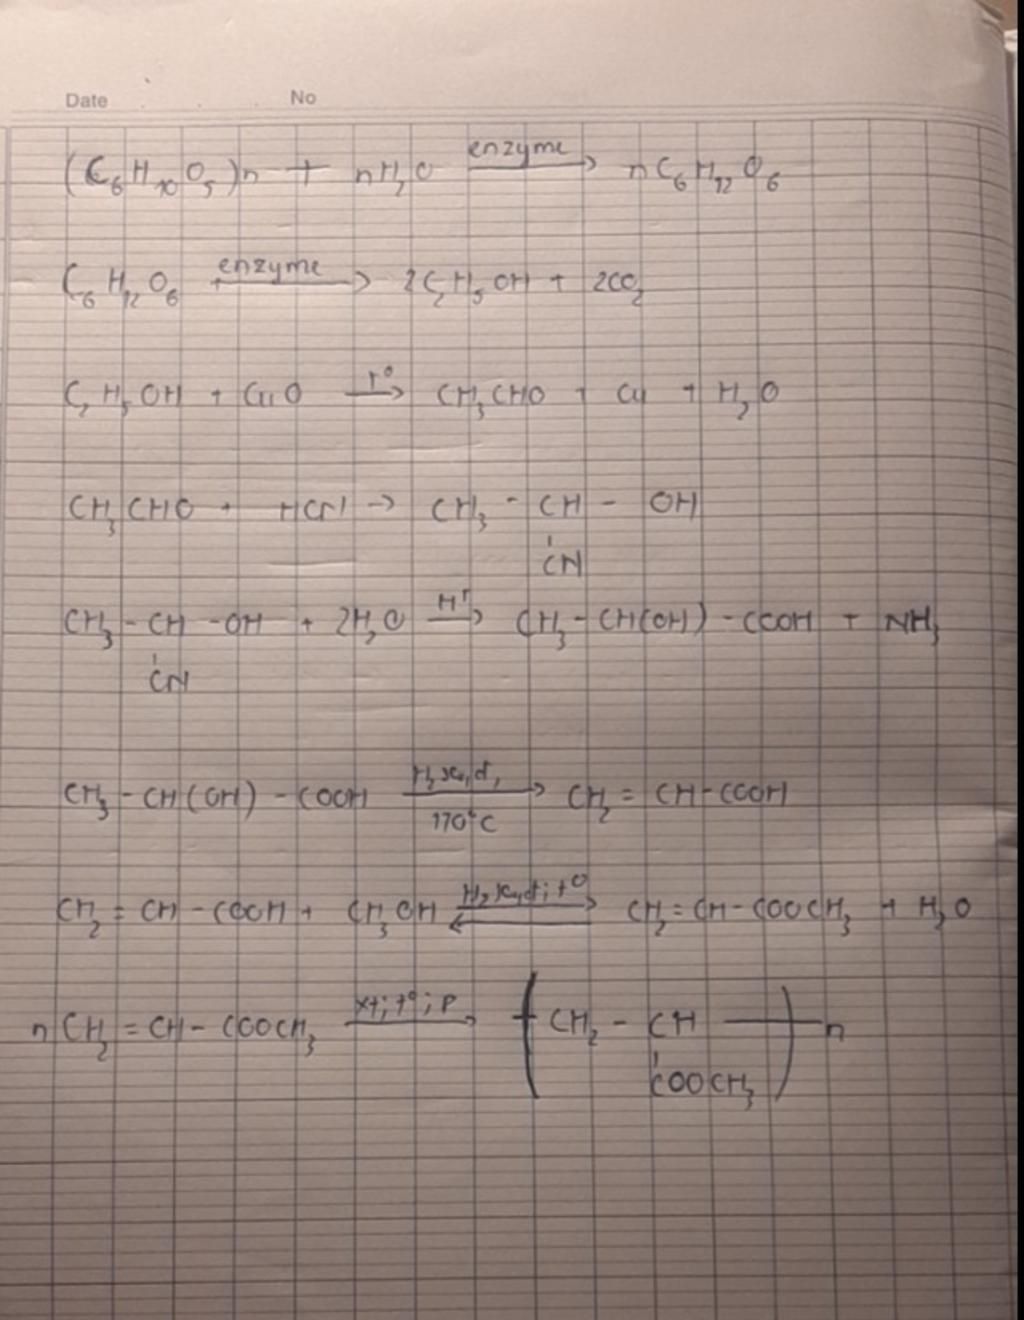 Date No
(C₆H₁₀O₅)n + nH₂O enzyme → nC₆H₁₂O₆
C₆H₁₂O₆ enzyme → 2C₂H₅OH + 2CO₂
C₂H₅OH + CuO t° → CH₃CHO + Cu + H₂O
CH₃CHO + HCN → CH₃ - CH - OH
CN
CH₃ - CH - OH + 2H₂O H⁺ → CH₃ - CH(OH) - COOH + NH₃
CN
CH₃ - CH(OH) - COOH H₂SO₄đ, 170°C → CH₂ = CH - COOH
CH₂ = CH - COOH + CH₃OH H₂SO₄đ; t° ⇌ CH₂ = CH - COOCH₃ + H₂O
nCH₂ = CH - COOCH₃ xt; t°; p → ( CH₂ - CH )n
COOCH₃